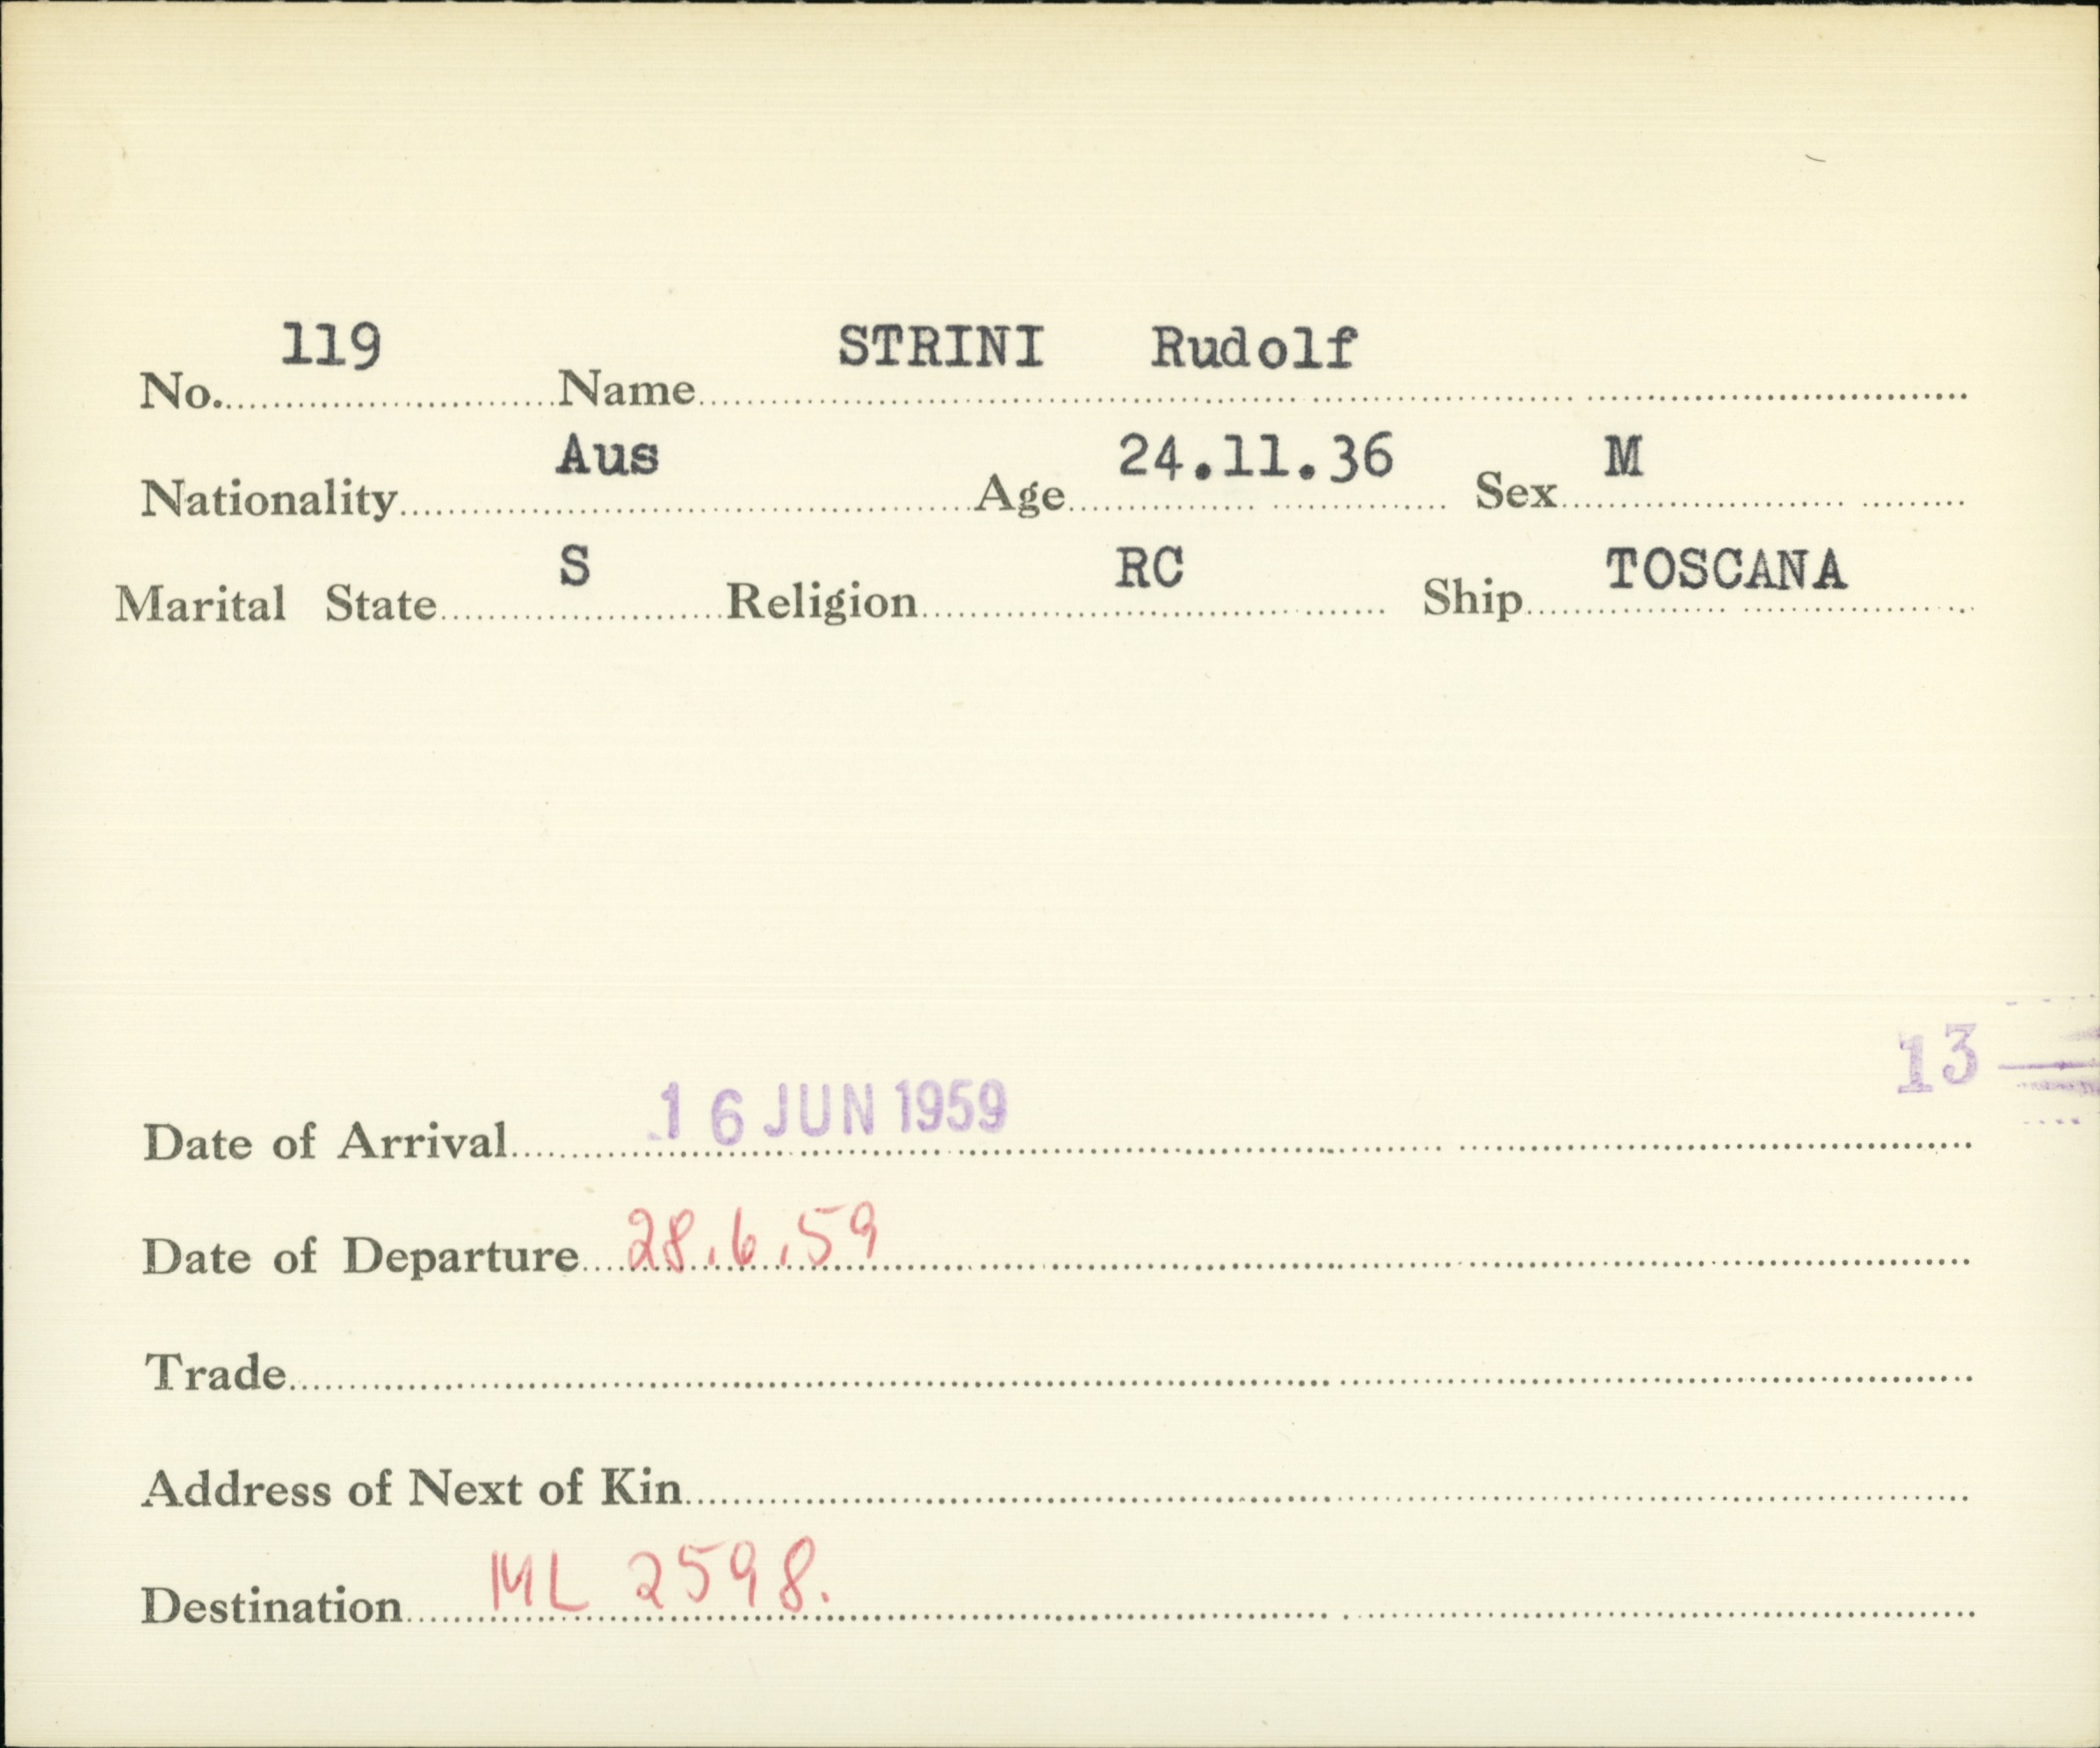 No. 119 Name STRINI Rudolf
Nationality Aus Age 24.11.36 Sex M
Marital State S Religion RC Ship TOSCANA
13
Date of Arrival 16 JUN 1959
Date of Departure 28.6.59
Trade
Address of Next of Kin
Destination ML 2598.